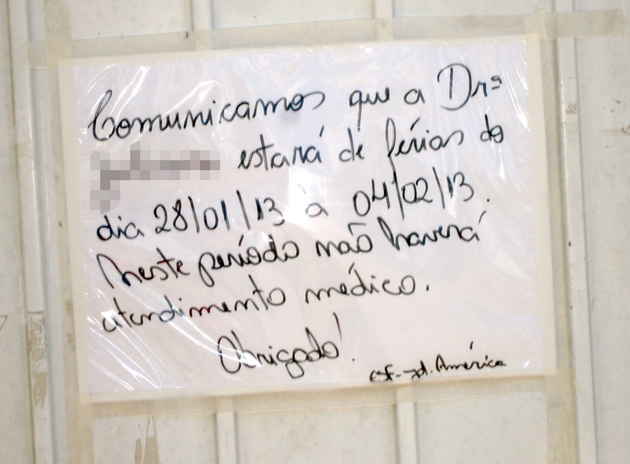 Comunicamos que a Drª
estará de férias do
dia 28/01/13 à 04/02/13.
Neste período não haverá
atendimento médico.
Obrigado!
ESF-Jd. América